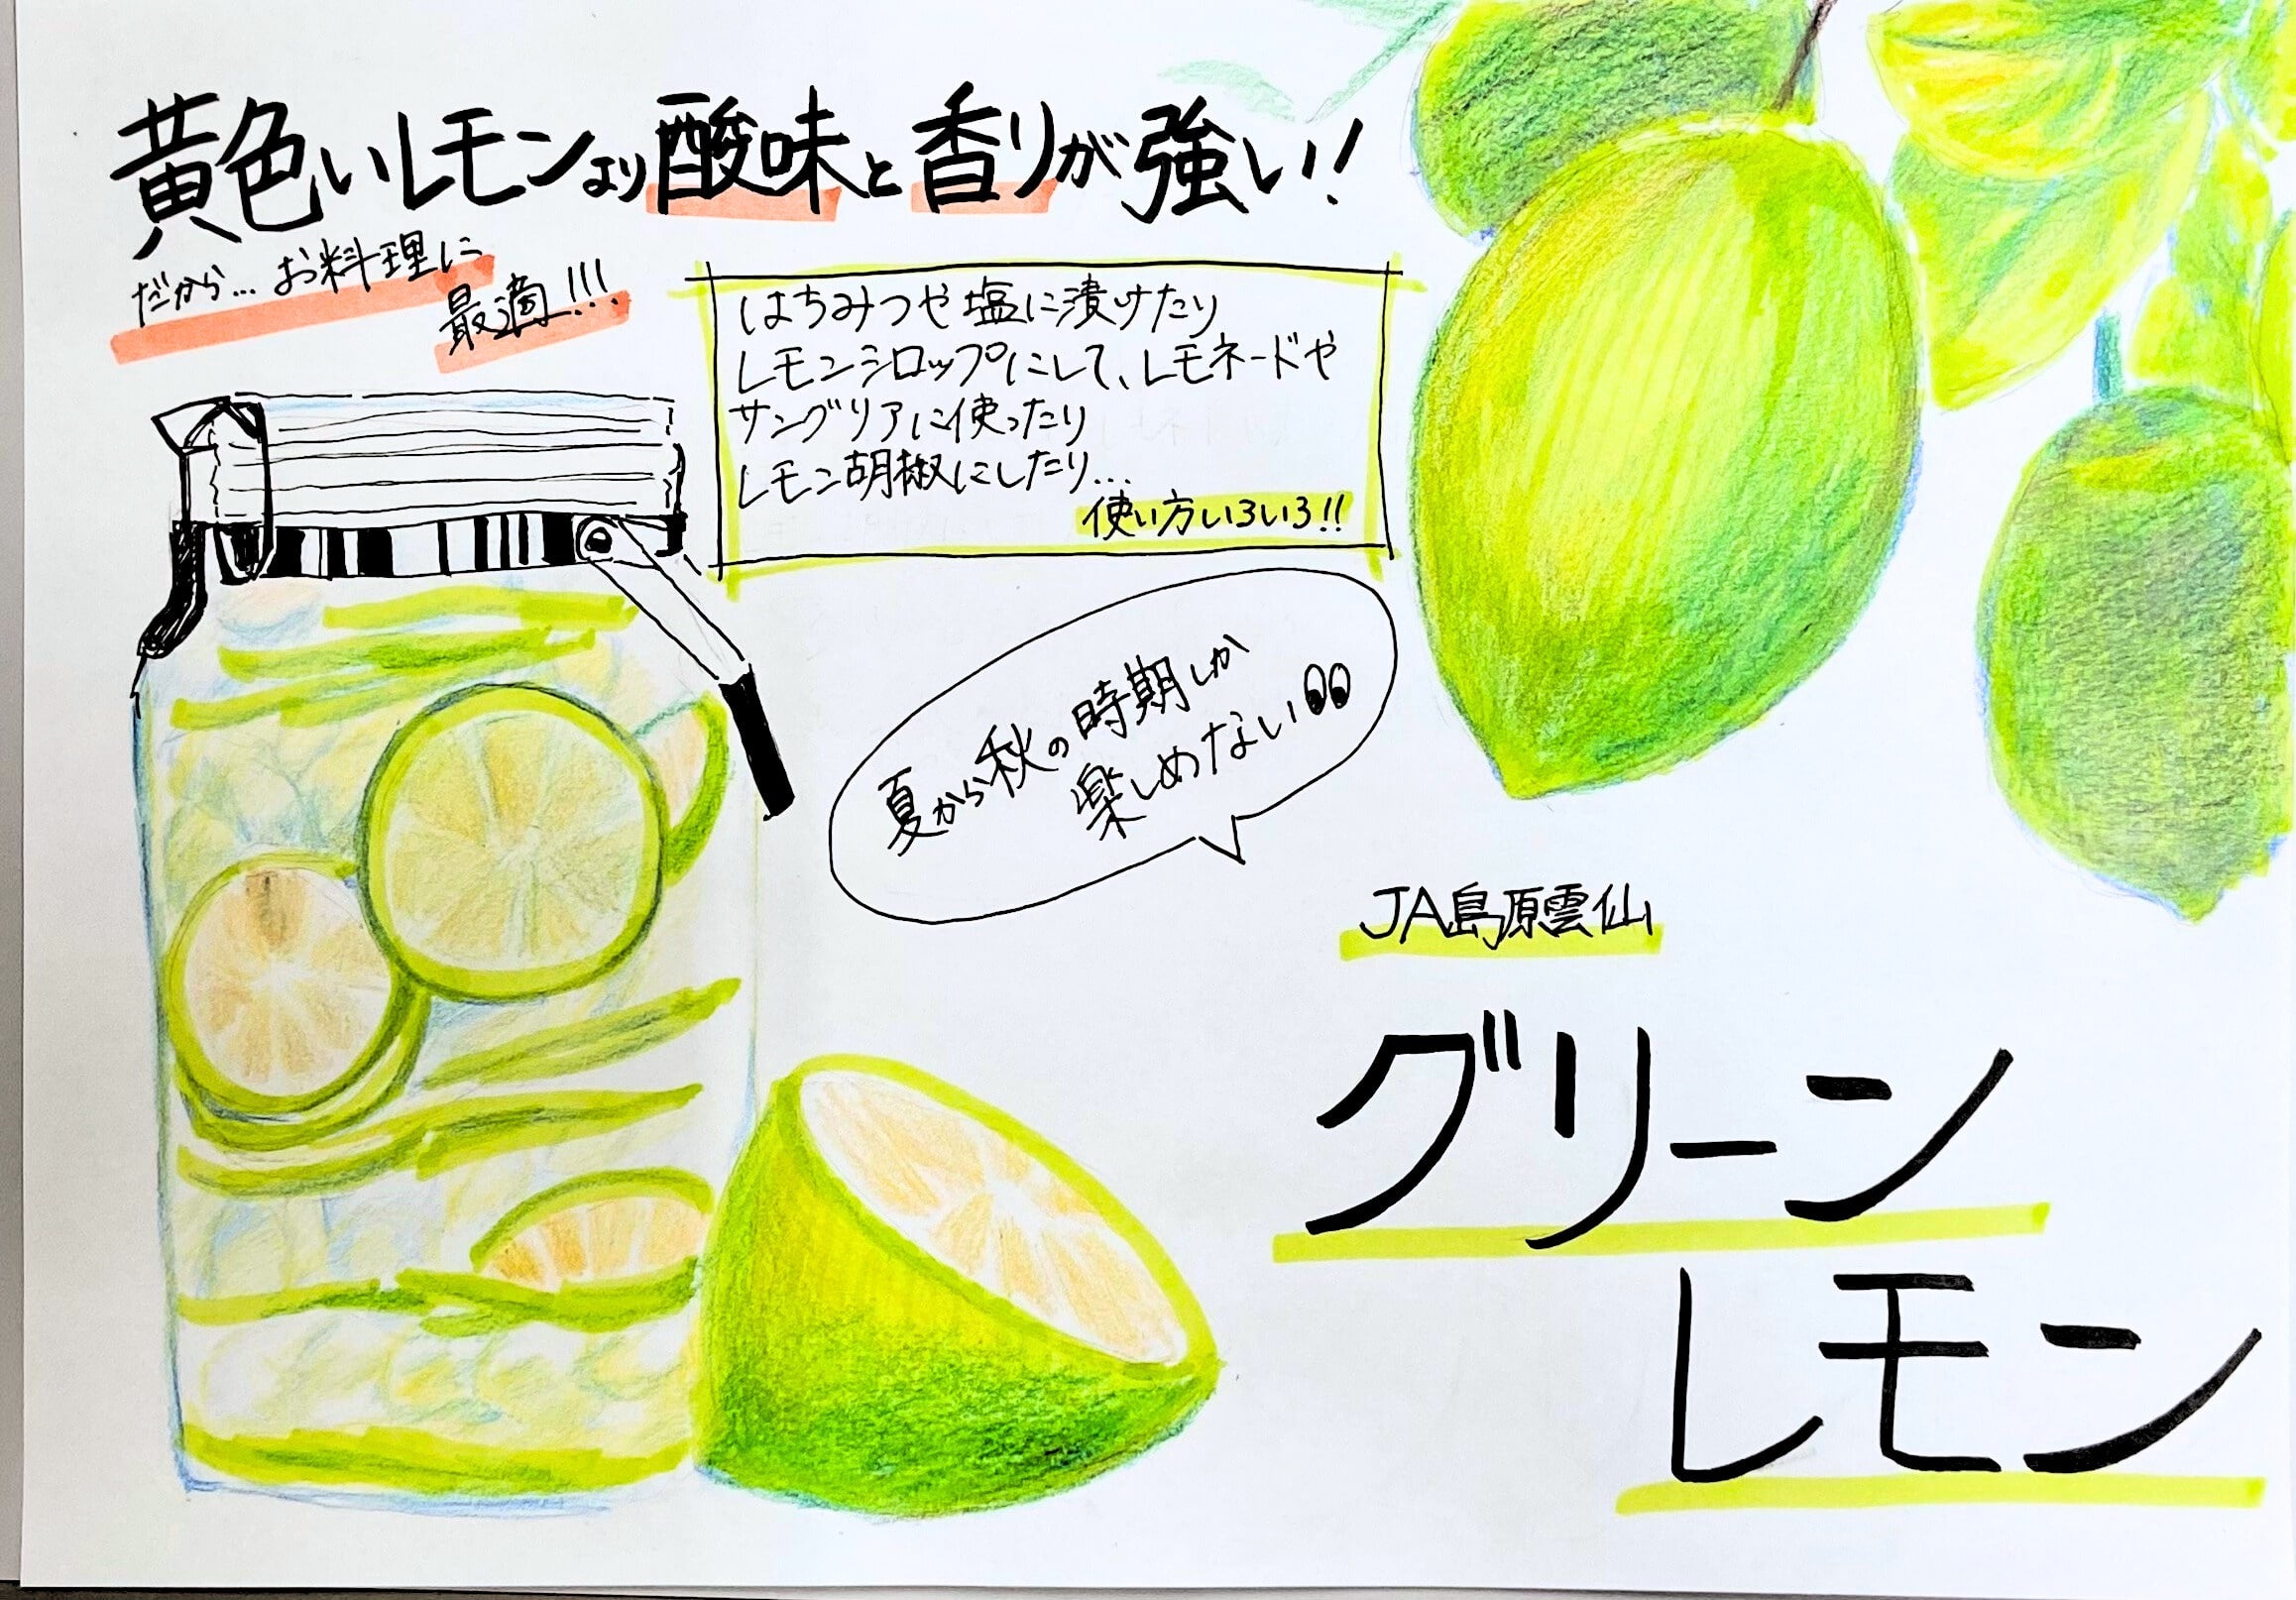 黄色いレモンより酸味と香りが強い!
だから…お料理に
最適!!!
はちみつや塩に漬けたり
レモンシロップにして、レモネードや
サングリアに使ったり
レモン胡椒にしたり…
使い方いろいろ!!
夏から秋の時期しか
楽しめない
JA島原雲仙
グリーン
レモン